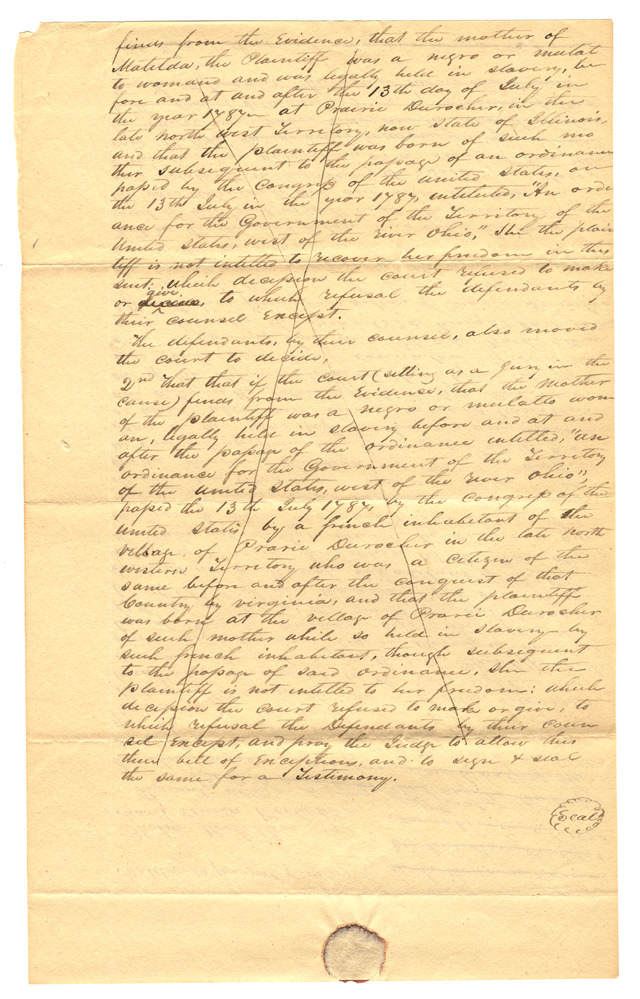 finds from the Evidence, that the mother of
Matilda, the Plaintiff was a negro or mulat
to womand and was legally held in slavery, be
fore and at and after the 13th day of July in
the year 1787 at Prairie Durocher, in the
late north west Territory, now state of Illinois,
and that the plaintiff was born of such mo
ther subsequent to the passage of an ordinance
passed by the Congress of the united states, on
the 13th July in the year 1787, intituled, "An ordi
ance for the Government of the Territory of the
United states, west of the river Ohio," she the plain
tiff is not intitled to recover her freedom in this
suit; which decission the court refused to make
give
or decide, to which refusal the defendants by
their counsel Except.
The defendants, by their counsel, also moved
the court to decide,
2nd That that if the court (setting as a Jury in the
cause) finds from the Evidence, that the mother
of the plaintiff was a negro or mulatto wom
an, legally held in slavery before and at and
after the passage of the ordinance intitled, "an
ordinance for the Government of the Territory
of the united states, west of the river Ohio,"
passed the 13th July 1787, by the Congress of the
united states by a french inhabitant of the
village of Prarie Durocher in the late north
western Territory who was a citizen of the
same before and after the conquest of that
Country by virginia, and that the plaintiff
was born at the village of Prarie Durocher
of such mother while so held in slavery by
such french inhabitant, though subsequent
to the passage of said ordinance, she the
plaintiff is not intitled to her freedom: which
decission the court refused to make or give, to
which refusal the Defendants by their coun
sel Except, and pray the Judge to allow this
their bill of Exceptions, and to sign & seal
the same for a Testimony.
Seal